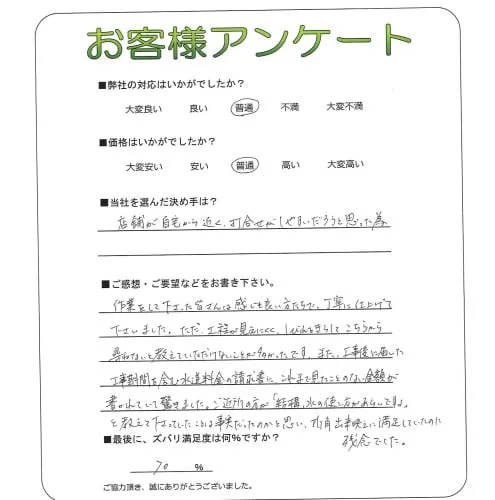 お客様アンケート
■弊社の対応はいかがでしたか？
大変良い 良い 普通 不満 大変不満
■価格はいかがでしたか？
大変安い 安い 普通 高い 大変高い
■当社を選んだ決め手は？
店舗が自宅から近く、打合せがしやすいだろうと思った為
■ご感想・ご要望などをお書き下さい。
作業をして下さった皆さんは感じも良い方たちで、丁寧に仕上げて
下さいました。ただ、工程が見えにくく、しびれをきらしてこちらから
尋ねないと教えていただけないことが多かったです。また、工事後に届いた
工事期間を含む水道料金の請求書に、これまで見たことのない金額が
書かれていて驚きました。ご近所の方が「結構、水の使い方があらいですよ」
と教えて下さってしたことは事実だったのかと思い、折角出来映えに満足していたのに
残念でした。
■最後に、ズバリ満足度は何%ですか？
70 %
ご協力頂き、誠にありがとうございました。